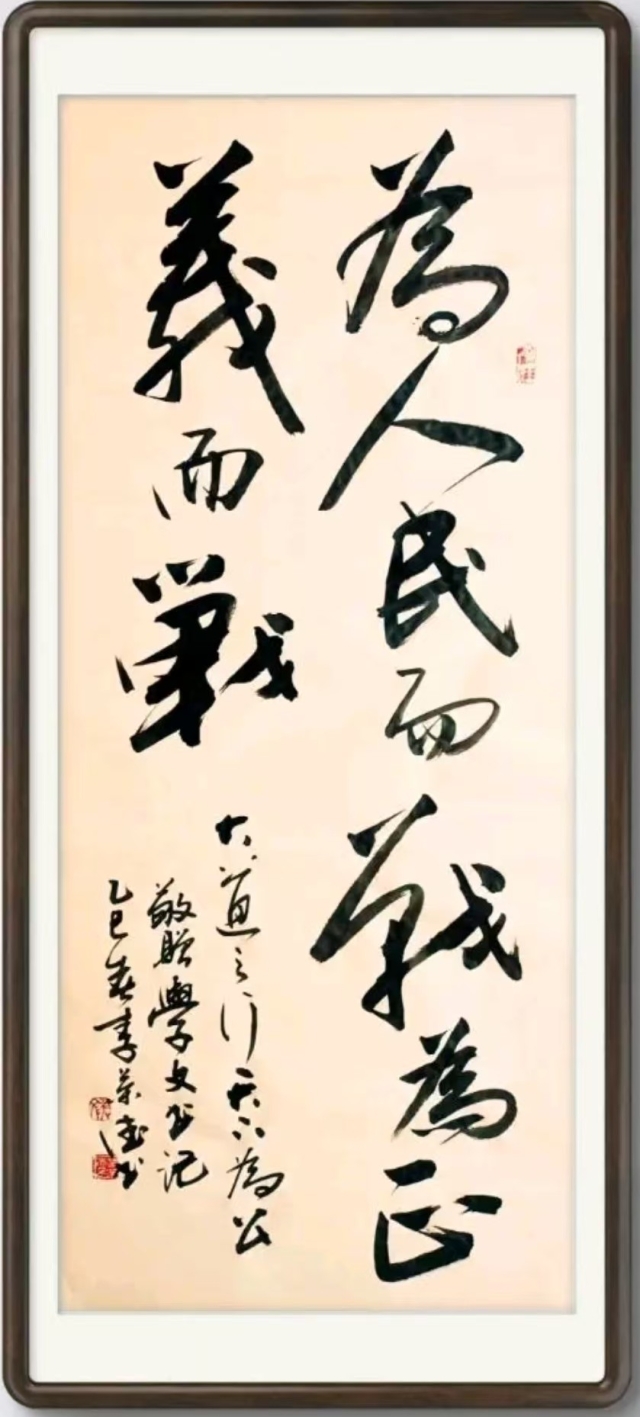 為人民而戰為正
義而戰
大道之行天下為公
敬贈學文書記
乙巳春李榮書